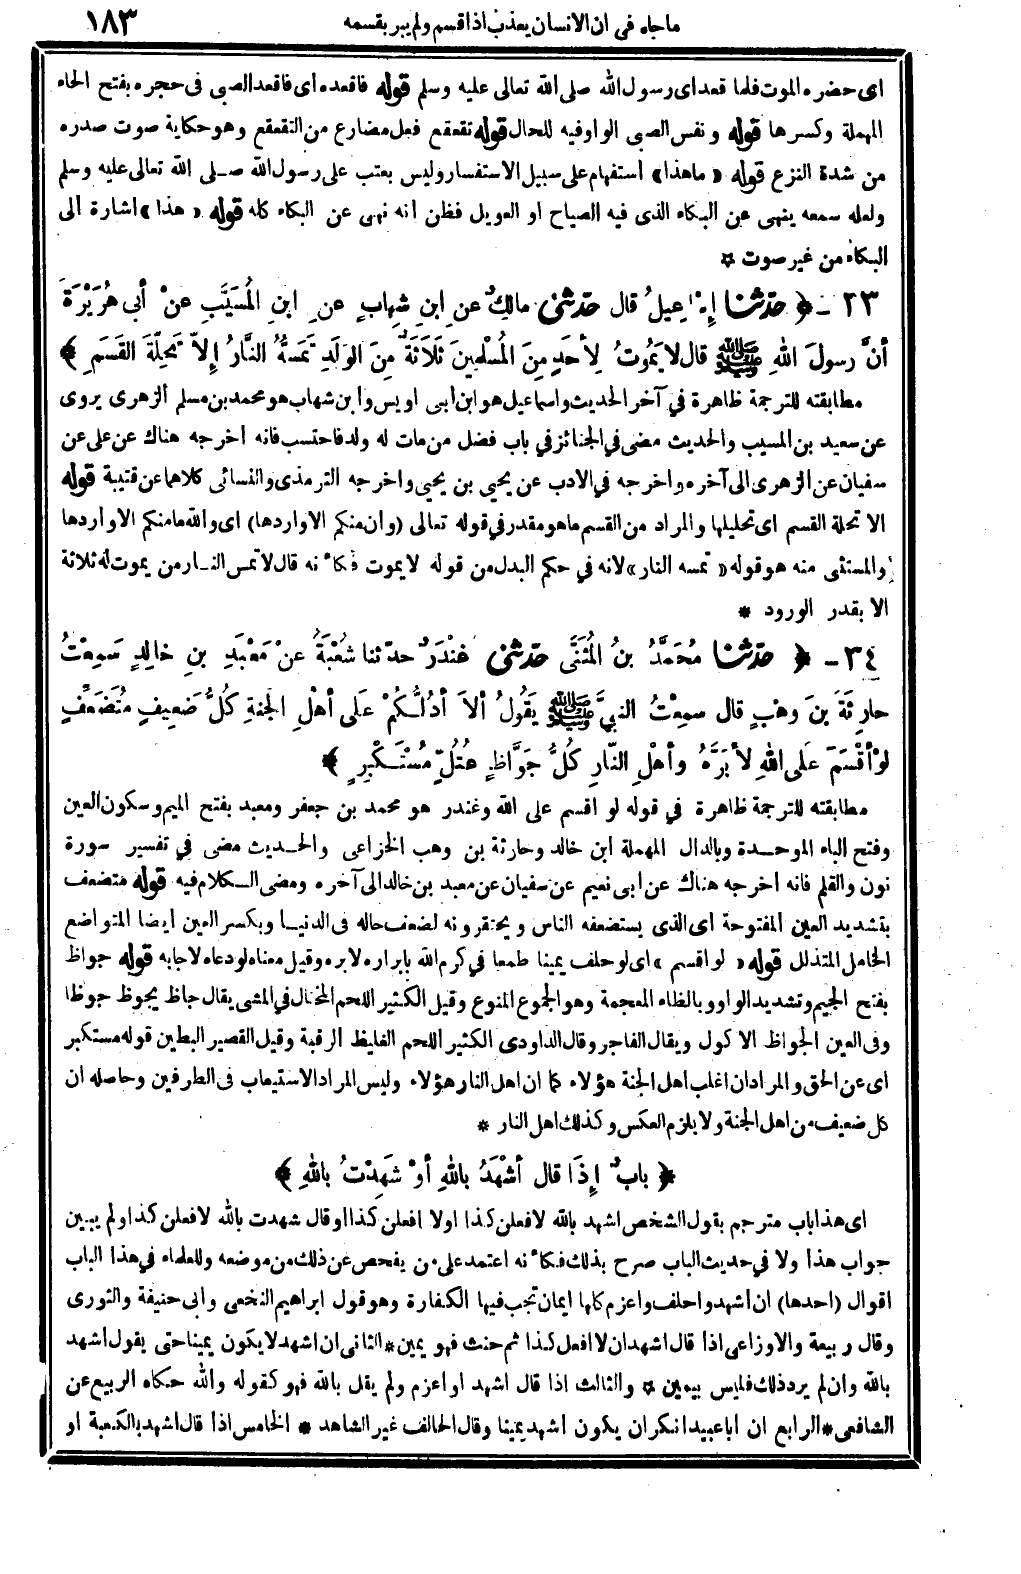 ماجاء في ان الانسان يعذب اذا اقسم ولم يبر بقسمه ١٨٣
اى حضره الموت فلما قعد اى رسول الله صلى الله تعالى عليه وسلم قوله فاقعده اى فاقعد الصبى فى حجره بفتح الحاء
المهملة وكسرها قوله ونفس الصبى الواو فيه للحال قوله تقعقع فعل مضارع من التقعقع وهو حكاية صوت صدره
من شدة النزع قوله «ماهذا» استفهام على سبيل الاستفسار وليس يعتب على رسول الله صلى الله تعالى عليه وسلم
ولعله سمعه ينهى عن البكاء الذى فيه الصياح او العويل فظن انه نهى عن البكاء كله قوله «هذا» اشارة الى
البكاء من غير صوت *
٢٣ - ﴿ حدثنا إسماعيلُ قال حدثنى مالكٌ عنِ ابنِ شِهابٍ عنِ ابنِ المُسَيَّبِ عنْ أبى هُرَيْرَةَ
أنَّ رسولَ اللهِ ﷺ قال لا يَمُوتُ لِأحَدٍ مِنَ المُسْلِمِينَ ثَلَاثَةٌ مِنَ الوَلَدِ تَمَسُّهُ النَّارُ إلاّ تَحِلَّةَ القَسَمِ ﴾
مطابقته للترجمة ظاهرة في آخر الحديث واسماعيل هو ابن أبى اويس وابن شهاب هو محمد بن مسلم الزهرى يروى
عن سعيد بن المسيب والحديث مضى في الجنائز في باب فضل من مات له ولد فاحتسب فانه اخرجه هناك عن على عن
سفيان عن الزهرى الى آخره واخرجه في الادب عن يحيى بن يحيى واخرجه الترمذى والنسائى كلاهما عن قتيبة قوله
الا تحلة القسم اى تحليلها والمراد من القسم ماهو مقدر في قوله تعالى (وان منكم الا واردها) اى والله مامنكم الا واردها
والمستثنى منه هو قوله «تمسه النار» لانه في حكم البدل من قوله لا يموت فكأنه قال لا تمس النار من يموت له ثلاثة
الا بقدر الورود *
٣٤ - ﴿ حدثنا مُحَمَّدُ بنُ المُثَنَّى حدثنى غنْدَرٌ حدثنا شُعْبَةُ عنْ مَعْبَدِ بنِ خالِدٍ سَمِعْتُ
حارِثَةَ بنَ وهْبٍ قال سمِعْتُ النبيَّ ﷺ يَقُولُ ألاَ أدُلُّكُمْ عَلى أهْلِ الجَنةِ كُلُّ ضَعِيفٍ مُتَضَعَّفٍ
لَوْ أقْسَمَ عَلى اللهِ لأبَرَّهُ وأهْلِ النّارِ كُلُّ جَوَّاظٍ عُتُلٍّ مُسْتَكْبِرٍ ﴾
مطابقته للترجمة ظاهرة في قوله لو اقسم على الله وغندر هو محمد بن جعفر ومعبد بفتح الميم وسكون العين
وفتح الباء الموحدة وبالدال المهملة ابن خالد وحارثة بن وهب الخزاعى والحديث مضى في تفسير سورة
نون والقلم فانه اخرجه هناك عن ابى نعيم عن سفيان عن معبد بن خالد الى آخره ومضى الكلام فيه قوله متضعف
بتشديد العين المفتوحة اى الذى يستضعفه الناس ويحتقرونه لضعف حاله فى الدنيا وبكسر العين ايضا المتواضع
الخامل المتذلل قوله «لو اقسم» اى لو حلف يمينا طمعا في كرم الله بابراره لابره وقيل معناه لو دعاه لاجابه قوله جواظ
بفتح الجيم وتشديد الواو وبالظاء المعجمة وهو الجموع المنوع وقيل الكثير اللحم المختال في المشى يقال جاظ يجوظ جوظا
وفى العين الجواظ الاكول ويقال الفاجر وقال الداودى الكثير اللحم الغليظ الرقبة وقيل القصير البطين قوله مستكبر
اى عن الحق والمراد ان اغلب اهل الجنة هؤلاء كما ان اهل النار هؤلاء وليس المراد الاستيعاب فى الطرفين وحاصله ان
كل ضعيف من اهل الجنة ولا يلزم العكس وكذلك اهل النار *
﴿ بابٌ إِذَا قال أشْهَدُ باللهِ أوْ شَهِدْتُ باللهِ ﴾
اى هذا باب مترجم بقول الشخص اشهد بالله لافعلن كذا اولا افعلن كذا او قال شهدت بالله لافعلن كذا ولم يبين
جواب هذا ولا في حديث الباب صرح بذلك فكأنه اعتمد على من يفحص عن ذلك من موضعه وللعلماء في هذا الباب
اقوال (احدها) ان اشهد واحلف واعزم كلها ايمان تجب فيها الكفارة وهو قول ابراهيم النخعى وابى حنيفة والثورى
وقال ربيعة والاوزاعى اذا قال اشهد ان لا افعل كذا ثم حنث فهو يمين * الثانى ان اشهد لا يكون يمينا حتى يقول اشهد
بالله وان لم يرد ذلك فليس بيمين * والثالث اذا قال اشهد او اعزم ولم يقل بالله فهو كقوله والله حكاه الربيع عن
الشافعى * الرابع ان ابا عبيد انكر ان يكون اشهد يمينا وقال الحالف غير الشاهد * الخامس اذا قال اشهد بالكعبة او